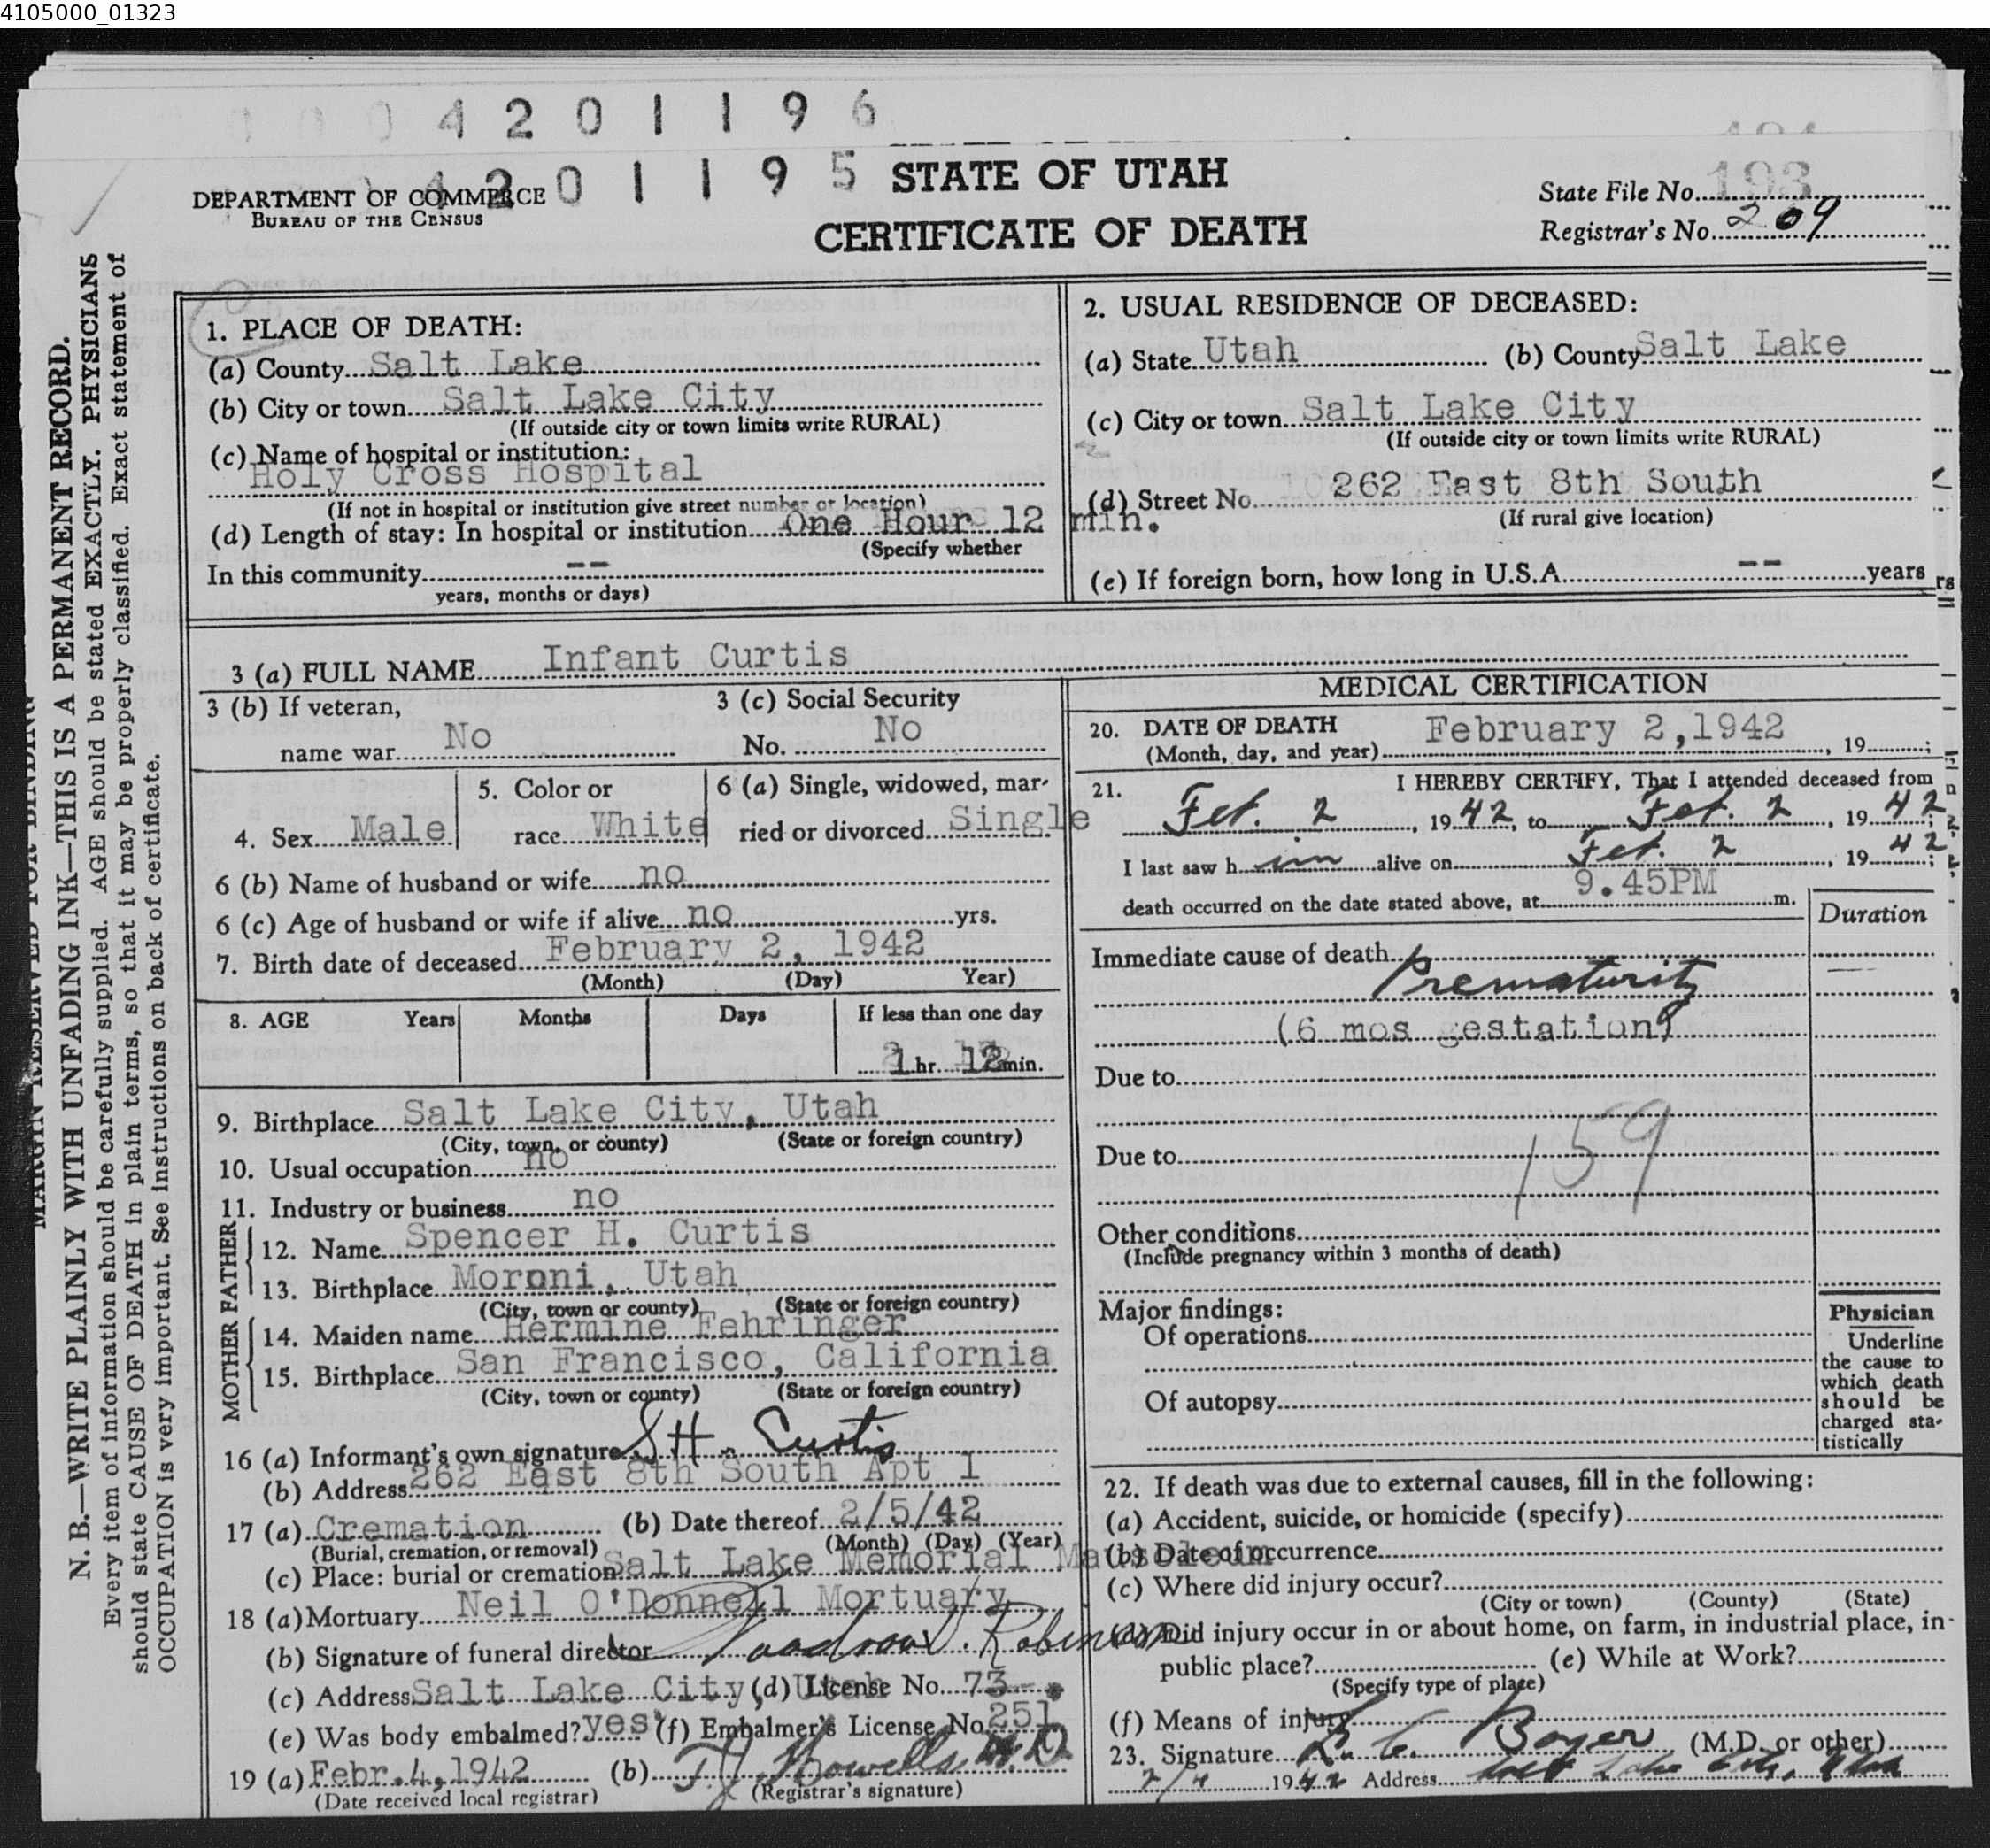 4105000_01323
4 2 0 1 1 9 6
4 2 0 1 1 9 5
DEPARTMENT OF COMMERCE
BUREAU OF THE CENSUS
STATE OF UTAH
CERTIFICATE OF DEATH
State File No. 193
Registrar's No. 209
MARGIN RESERVED FOR BINDING
N. B.—WRITE PLAINLY WITH UNFADING INK—THIS IS A PERMANENT RECORD.
Every item of information should be carefully supplied. AGE should be stated EXACTLY. PHYSICIANS
should state CAUSE OF DEATH in plain terms, so that it may be properly classified. Exact statement of
OCCUPATION is very important. See instructions on back of certificate.
1. PLACE OF DEATH:
(a) County Salt Lake
(b) City or town Salt Lake City
(If outside city or town limits write RURAL)
(c) Name of hospital or institution:
Holy Cross Hospital
(If not in hospital or institution give street number or location)
(d) Length of stay: In hospital or institution One Hour 12 min.
(Specify whether
In this community --
years, months or days)
2. USUAL RESIDENCE OF DECEASED:
(a) State Utah (b) County Salt Lake
(c) City or town Salt Lake City
(If outside city or town limits write RURAL)
(d) Street No. 262 East 8th South
(If rural give location)
(e) If foreign born, how long in U.S.A. -- years
3 (a) FULL NAME Infant Curtis
3 (b) If veteran,
name war No
3 (c) Social Security
No. No
4. Sex Male
5. Color or
race White
6 (a) Single, widowed, mar-
ried or divorced Single
6 (b) Name of husband or wife no
6 (c) Age of husband or wife if alive no yrs.
7. Birth date of deceased February 2, 1942
(Month) (Day) Year)
8. AGE Years Months Days If less than one day
1 hr. 12 min.
9. Birthplace Salt Lake City, Utah
(City, town, or county) (State or foreign country)
10. Usual occupation no
11. Industry or business no
FATHER
12. Name Spencer H. Curtis
13. Birthplace Moroni, Utah
(City, town or county) (State or foreign country)
MOTHER
14. Maiden name Hermine Fehringer
15. Birthplace San Francisco, California
(City, town or county) (State or foreign country)
16 (a) Informant's own signature S H. Curtis
(b) Address 262 East 8th South Apt 1
17 (a) Cremation (b) Date thereof 2/5/42
(Burial, cremation, or removal) (Month) (Day) (Year)
(c) Place: burial or cremation Salt Lake Memorial Mausoleum
18 (a) Mortuary Neil O'Donnell Mortuary
(b) Signature of funeral director Woodrow Robinson
(c) Address Salt Lake City, Utah (d) License No. 73
(e) Was body embalmed? yes (f) Embalmer's License No. 251
19 (a) Febr. 4, 1942 (b) T.J. Howells M.D.
(Date received local registrar) (Registrar's signature)
MEDICAL CERTIFICATION
20. DATE OF DEATH
(Month, day, and year) February 2, 1942, 19 ;
21. I HEREBY CERTIFY, That I attended deceased from
Feb. 2, 1942, to Feb. 2, 1942
I last saw h im alive on Feb. 2, 1942;
death occurred on the date stated above, at 9.45PM m.
Duration
Immediate cause of death
Prematurity
(6 mos gestation)
Due to
Due to
159
Other conditions
(Include pregnancy within 3 months of death)
Major findings:
Of operations
Of autopsy
Physician
Underline
the cause to
which death
should be
charged sta-
tistically
22. If death was due to external causes, fill in the following:
(a) Accident, suicide, or homicide (specify)
(b) Date of occurrence
(c) Where did injury occur?
(City or town) (County) (State)
(d) Did injury occur in or about home, on farm, in industrial place, in
public place? (e) While at Work?
(Specify type of place)
(f) Means of injury
23. Signature L. C. Boyer (M.D. or other)
2/4 1942 Address Salt Lake City, Utah